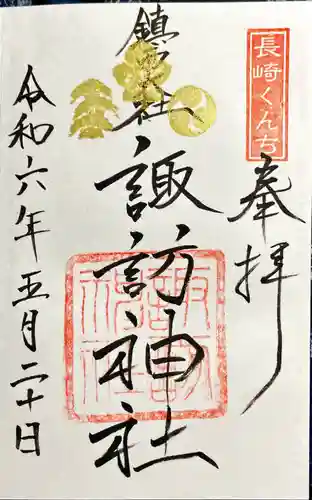 長崎くんち
奉拝
鎮西大社
諏訪神社
令和六年五月二十日